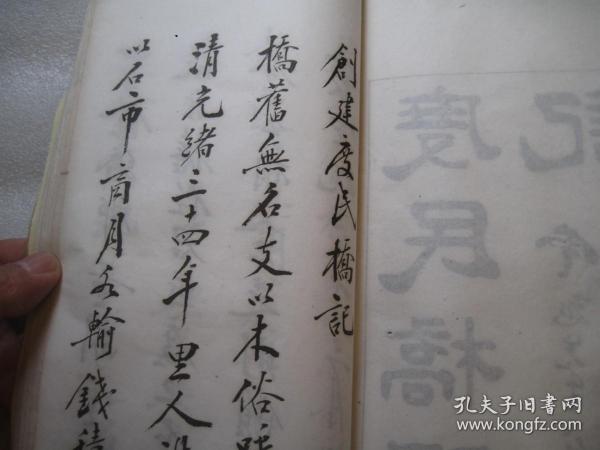 創建度民橋記
橋舊無名支以木俗
清光緒三十四年里人
以石市商月各輸錢
度民橋
記
孔夫子旧书网
www.kongfz.com